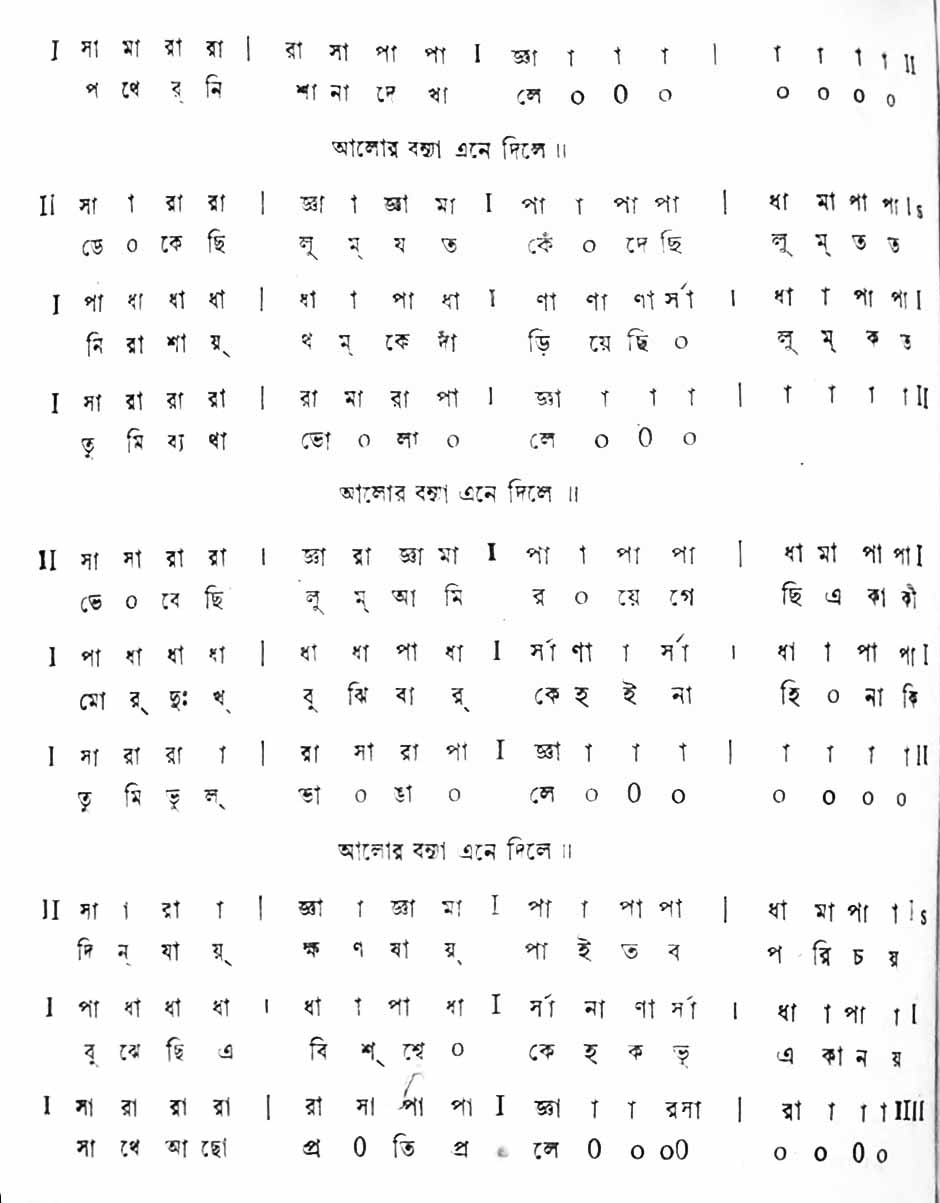 I সা মা রা রা | রা সা পা পা I জ্ঞা া া া | া া া া II
প থে র্ নি শা না দে খা লে ০ 0 ০ ০ ০ ০ ০
আলোর বন্যা এনে দিলে ॥
II সা া রা রা | জ্ঞা া জ্ঞা মা I পা া পা পা | ধা মা পা পা Is
ডে ০ কে ছি লু ম্ য ত কেঁ ০ দে ছি লু ম্ ত ত
I পা ধা ধা ধা | ধা া পা ধা I ণা ণা ণা র্সা । ধা া পা পা I
নি রা শা য়্ থ ম্ কে দাঁ ড়ি য়ে ছি ০ লু ম্ ক ত
I সা রা রা রা | রা মা রা পা I জ্ঞা া া া | া া া া II
তু মি ব্য থা ভো ০ লা ০ লে ০ 0 ০
আলোর বন্যা এনে দিলে ॥
II সা সা রা রা । জ্ঞা রা জ্ঞা মা I পা া পা পা | ধা মা পা পা I
ভে ০ বে ছি লু ম্ আ মি র ০ য়ে গে ছি এ কা কী
I পা ধা ধা ধা | ধা ধা পা ধা I র্সা ণা া র্সা । ধা া পা পা I
মো র্ দুঃ খ্ বু ঝি বা র্ কে হ ই না হি ০ না কি
I সা রা রা া | রা সা রা পা I জ্ঞা া া া | া া া া II
তু মি ভু ল্ ভা ০ ঙা ০ লে ০ 0 ০ ০ ০ ০ ০
আলোর বন্যা এনে দিলে ॥
II সা া রা া | জ্ঞা া জ্ঞা মা I পা া পা পা | ধা মা পা া Is
দি ন্ যা য়্ ক্ষ ণ যা য়্ পা ই ত ব প রি চ য়
I পা ধা ধা ধা । ধা া পা ধা I র্সা না ণা র্সা । ধা া পা া I
বু ঝে ছি এ বি শ্ শ্বে ০ কে হ ক ভূ এ কা ন য়
I সা রা রা রা | রা সা পা পা I জ্ঞা া া রসা | রা া া া IIII
সা থে আ ছো প্র 0 তি প্র লে 0 ০ ০0 ০ ০ 0 ০